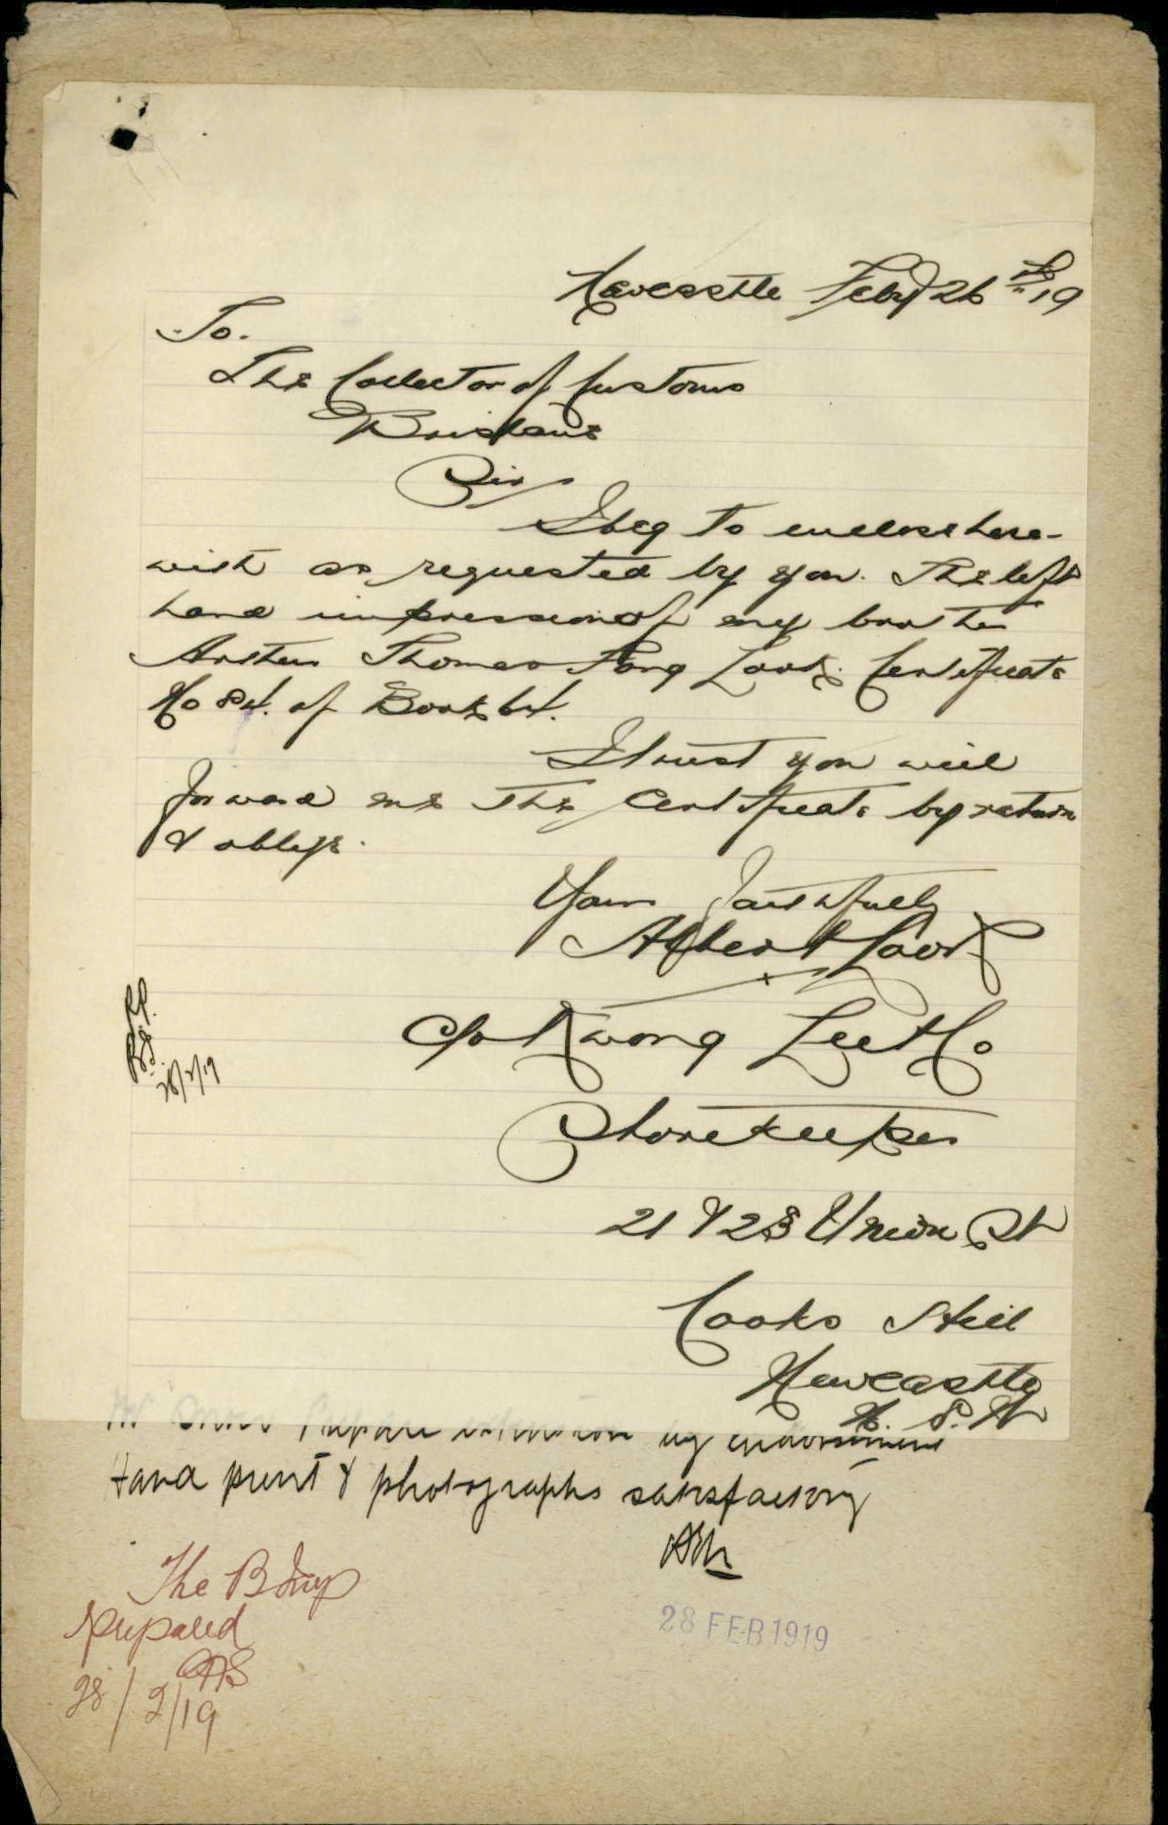 Newcastle Feby 26th 19
To.
The Collector of Customs
Brisbane
Sir/
I beg to enclose here-
with as requested by you. The left
hand impression of my brother
Arthur Thomas Fong Look. Certificate
No 84. of Book 64.
I trust you will
forward me the Certificate by return
& oblige.
Yours faithfully
Albert Look
C/o Kwong Lee & Co
Storekeeper
21 & 23 Union St
Cooks Hill
Newcastle
N. S. W
28/2/19
Prepare extension by endorsement
Hand print & photographs satisfactory
28 FEB 1919
The B Insp
prepared
28/2/19